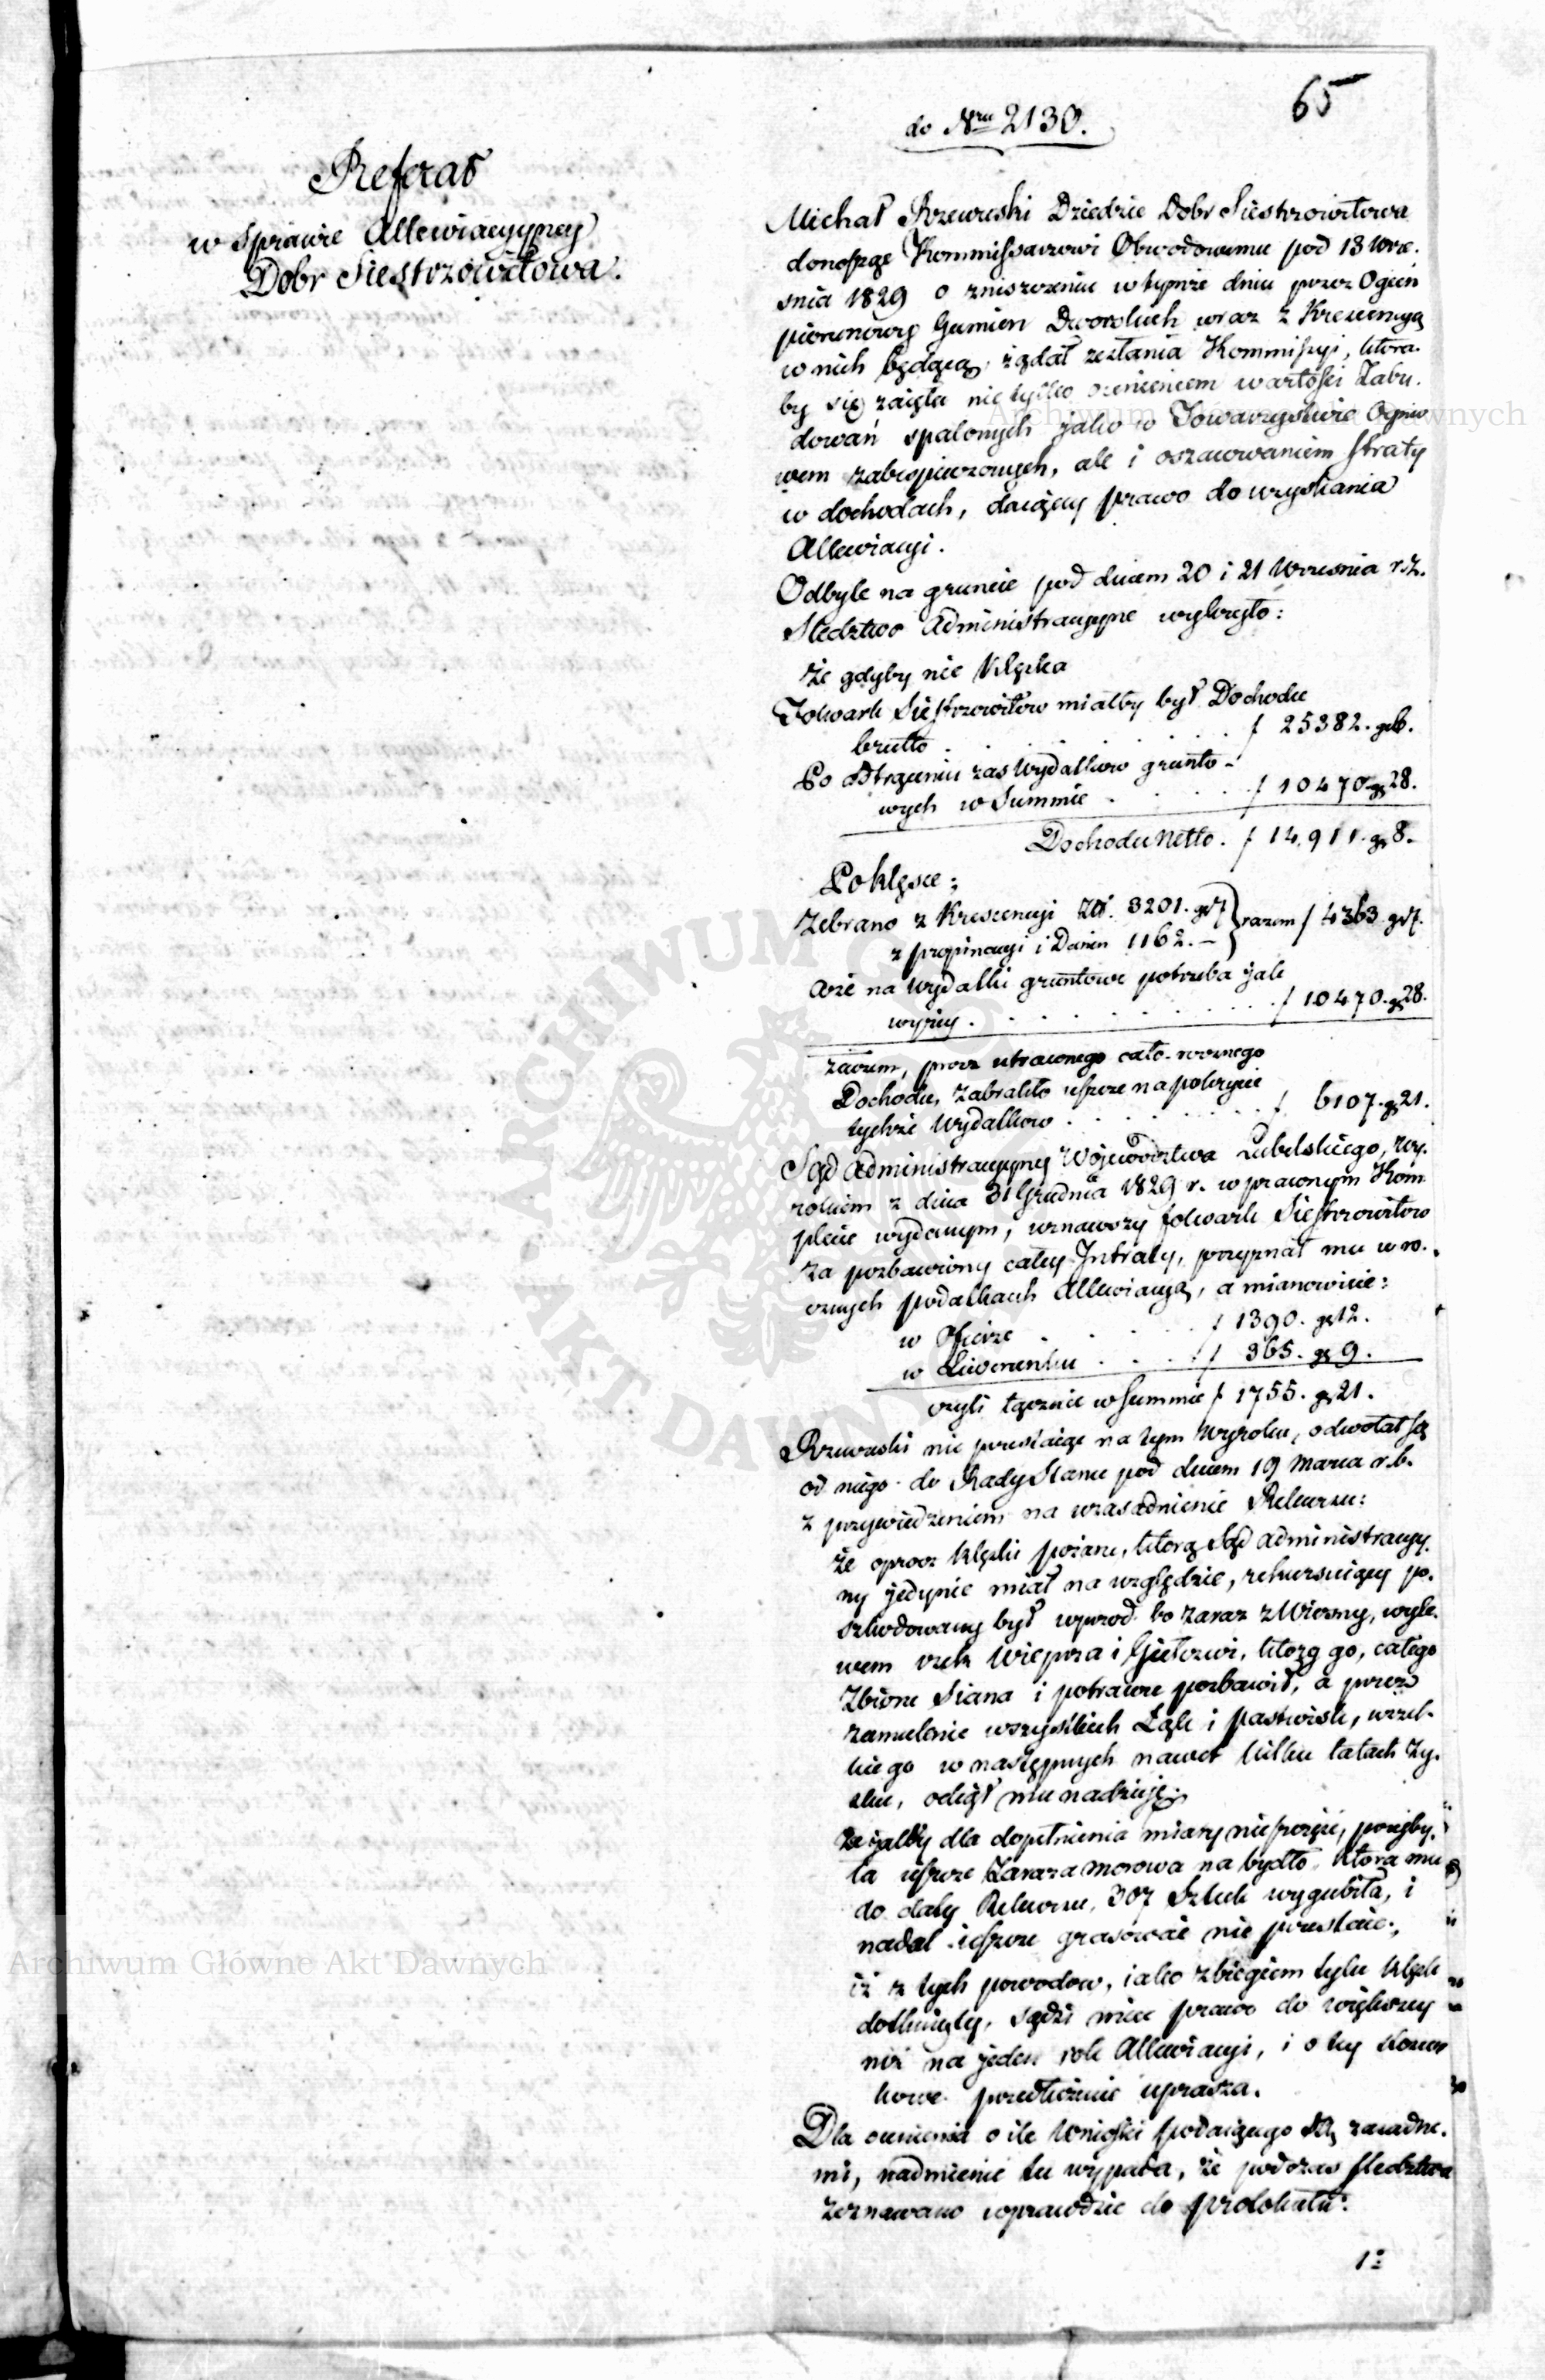 65
do Nru 2130.
Referat
w sprawie Allewiacyyney
Dobr Siestrzewitowa.
Michał Rzewuski Dziedzic Dobr Siestrzewitowa
donosząc Kommissarzowi Obwodowemu pod 18 Wrze-
śnia 1829 o zniszczeniu w tymże dniu przez Ogień
piorunowy Gumien Dworskich wraz z Krescencyą
w nich będącą, żądał zesłania Kommissyi, która-
by się zaięła nie tylko ocenieniem wartości Zabu-
dowań spalonych jako w Towarzystwie Ognio
wem zabespieczonych, ale i oszacowaniem straty
w dochodach, daiącey prawo do uzyskania
Allewiacyi.
Odbyte na gruncie pod dniem 20 i 21 Września r. z.
Śledztwo Administracyyne wykryło:
że gdyby nie klęska
Folwark Siestrzewitow miałby był Dochodu
brutto . . . . . . . f 25382. gr 6.
Po odtrąceniu zaś Wydatkow grunto-
wych w Summie . . . . . f 10470 gr 28.
Dochodu Netto. f 14,911. gr 8.
Po klęsce:
Zebrano z Krescencyi Zł. 3201. gr 7 } razem f 4363 gr 7.
z propinacyi i Danin 1162. –
a że na wydatki gruntowe potrzeba jak
wyżey . . . . . . . . . f 10470. gr 28.
zaczem, procz utraconego cało-rocznego
Dochodu, zabrakło ieszcze na pokrycie
tychże Wydatkow . . . . . . . f 6107. gr 21.
Sąd Administracyyny Województwa Lubelskiego, wy-
rokiem z dnia 31 Grudnia 1829 r. w prawnym Kom-
plecie wydanym, uznawszy folwark Siestrzewitow
za pozbawiony całey Intraty, przyznał mu w ro-
cznych podatkach Allewiacyą, a mianowicie:
w Ofierze . . . . . f 1390. gr 12.
w Liwerunku . . . . f 365. gr 9.
czyli łącznie w Summie f 1755. gr 21.
Rzewuski nie przestaiąc na tym Wyroku, odwołał się
od niego do Rady Stanu pod dniem 19 Marca r. b.
z przywiedzeniem na uzasadnienie Rekursu:
że oprocz klęski pożaru, którą Sąd Administracyy-
ny jedynie miał na względzie, rekursuiący po-
szkodowany był wprzod bo zaraz z Wiosny, wyle-
wem rzek Wieprza i Giełczwi, który go, całego
Zbioru Siana i potrawu pozbawił, a przez
zamulenie wszystkich Łąk i pastwisk, wszel-
kiego w następnych nawet kilku latach Zy-
sku, odiął mu nadzieję;
że jakby dla dopełnienia miary nieszczęść, przyby-
ła ieszcze Zaraza morowa na bydło, która mu
do daty Rekursu, 307 Sztuk wygubiła, i
nadal ieszcze grasować nie przestaie;
iż z tych powodow, iako zbiegiem tylu klęsk
dotknięty, sądzi mieć prawo do większey
niż na jeden rok Allewiacyi, i o tey skutec
przedłożenie uprasza.
Dla ocenienia o ile Wnioski podaiącego są zasadne-
mi, nadmienić tu wypada, że podczas śledztwa
zeznawano wprawdzie do protokułu:
1:
Archiwum Główne Akt Dawnych
Archiwum Główne Akt Dawnych
ARCHIWUM GŁÓWNE AKT DAWNYCH